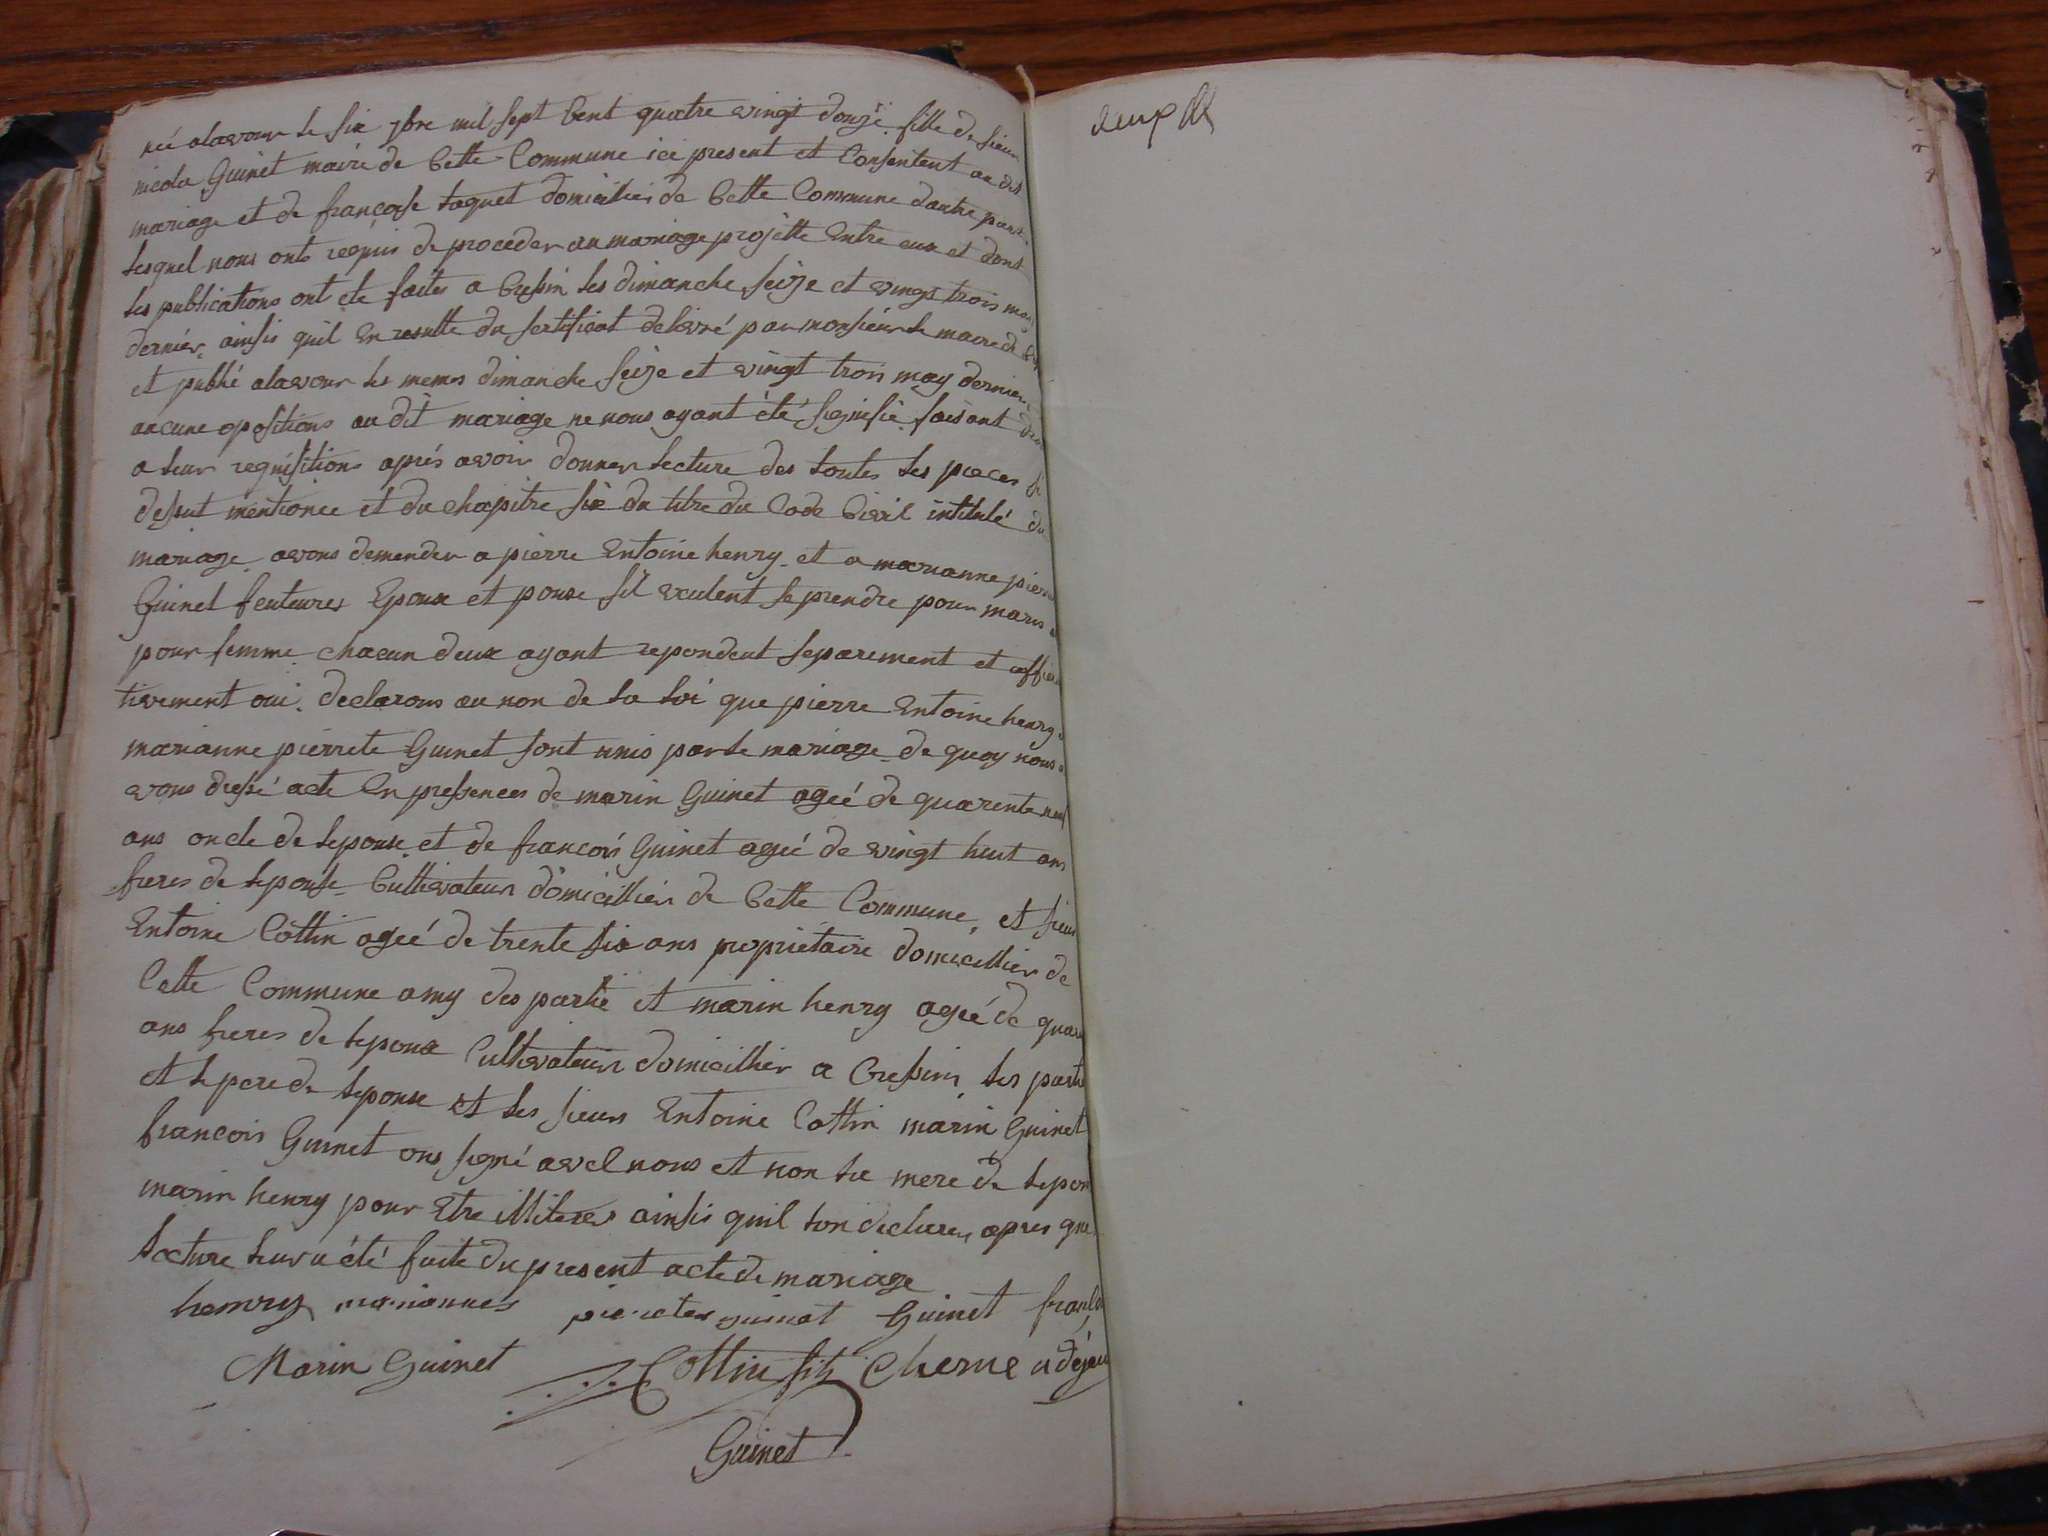 née alavour le six 7bre mil sept Cent quatre vingt douze fille de sieur
nicola Guinet maire de Cette Commune ice present et Consentent au dit
mariage et de françoise taquet domicilies de Cette Commune dautre part
lesquel nous onts requis de proceder au mariage projette Entre eux et dont
les publications ont ete faites a Cressin les dimanche seize et vingt trois may
dernier ainsis quil En resulte du sertificat delivré par monsieur le maire de
et publié alavour les memes dimanche seize et vingt trois may dernier
aucune opositions au dit mariage ne nous ayant été signifié faisant
a leur requisitions aprés avoir donner lecture des toutes les pieces
dessut mentionee et du chapitre six du titre du Code Civil intitulé du
mariage avons demender a pierre Entoine henry et a marianne pierre
Guinet feuteures Epoux et pouse sil veulent se prendre pour maris
pour femme chacun deux ayant repondeut separement et affir
tivement oui declarons au non de la loi que pierre Entoine henry
marianne pierrete Guinet sont unis par le mariage de quoy nous
avons dressé acte En pressences de marin Guinet ageé de quarente neuf
ans oncle de lepouse et de francois Guinet ageé de vingt huit ans
freres de lepouse Cultivateur domicillier de Cette Commune, et sieur
Entoine Cottin ageé de trente six ans propriétaire domicillier de
Cette Commune amy des partie et marin henry ageé de quar
ans freres de lepoux Cultivateur domicillier a Cressin les partie
et le pere de lepouse et les sieurs Entoine Cottin marin Guinet
francois Guinet ons signé avel nous et non la mere de lepou
marin henry pour Etre illiteres ainsis quil lon declarer apres que
lecture leur a été faite du present acte de mariage
henry mariannes pierretes guinet Guinet françois
Marin Guinet Cottin fils Cherne adéjeu
Guinet